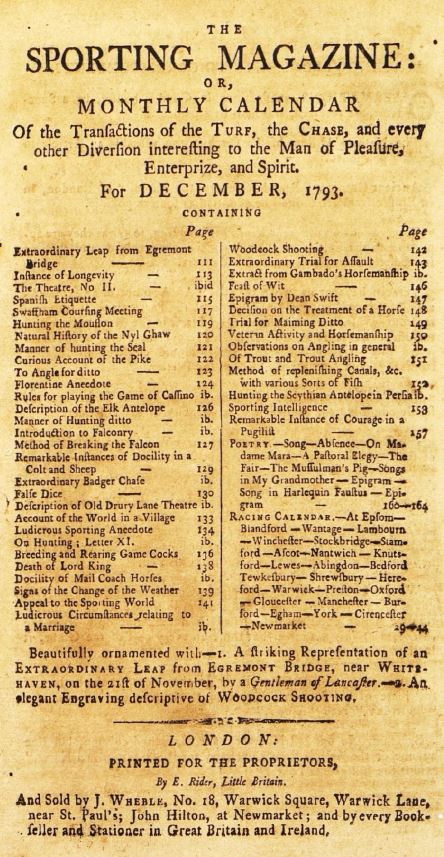 THE
SPORTING MAGAZINE:
OR,
MONTHLY CALENDAR
Of the Tranſactions of the TURF, the CHASE, and every
other Diverſion intereſting to the Man of Pleaſure,
Enterprize, and Spirit.
For DECEMBER, 1793.
CONTAINING
Page
Extraordinary Leap from Egremont
Bridge — 111
Inſtance of Longevity — 113
The Theatre, No II. — ibid
Spaniſh Etiquette — 115
Swaffham Courſing Meeting 117
Hunting the Mouflon — 119
Natural Hiſtory of the Nyl Ghaw 120
Manner of hunting the Seal 121
Curious Account of the Pike 122
To Angle for ditto — 123
Florentine Anecdote — 124
Rules for playing the Game of Caſſino ib.
Deſcription of the Elk Antelope 126
Manner of Hunting ditto — ib.
Introduction to Falconry — ib.
Method of Breaking the Falcon 127
Remarkable Inſtances of Docility in a
Colt and Sheep — 129
Extraordinary Badger Chaſe ib.
Falſe Dice — 130
Deſcription of Old Drury Lane Theatre ib.
Account of the World in a Village 133
Ludicrous Sporting Anecdote 134
On Hunting; Letter XI. ib.
Breeding and Rearing Game Cocks 136
Death of Lord King — 138
Docility of Mail Coach Horſes ib.
Signs of the Change of the Weather 139
Appeal to the Sporting World 141
Ludicrous Circumſtances relating to
a Marriage — ib.
Page
Woodcock Shooting — 142
Extraordinary Trial for Aſſault 143
Extract from Gambado's Horſemanſhip ib.
Feaſt of Wit — 146
Epigram by Dean Swift — 147
Deciſion on the Treatment of a Horſe 148
Trial for Maiming Ditto 149
Veteran Activity and Horſemanſhip 150
Obſervations on Angling in general ib.
Of Trout and Trout Angling 151
Method of repleniſhing Canals, &c.
with various Sorts of Fiſh 152
Hunting the Scythian Antelope in Perſia ib.
Sporting Intelligence — 153
Remarkable Inſtance of Courage in a
Pugiliſt — 157
POETRY—Song—Abſence—On Ma-
dame Mara—A Paſtoral Elegy—The
Fair—The Muſſulman's Pig—Songs
in My Grandmother—Epigram—
Song in Harlequin Fauſtus—Epi-
gram — 160—164
RACING CALENDAR.—At Epſom—
Blandford—Wantage—Lambourn
—Wincheſter—Stockbridge—Stam-
ford—Aſcot—Nantwich—Knuts-
ford—Lewes—Abingdon—Bedford
Tewkeſbury—Shrewſbury—Here-
ford—Warwick—Preſton—Oxford
—Glouceſter—Mancheſter—Bur-
ford—Egham—York—Cirenceſter
—Newmarket — 29—44
Beautifully ornamented with—1. A ſtriking Repreſentation of an
EXTRAORDINARY LEAP from EGREMONT BRIDGE, near WHITE-
HAVEN, on the 21ſt of November, by a Gentleman of Lancaſter.—2. An
elegant Engraving deſcriptive of WOODCOCK SHOOTING.
LONDON:
PRINTED FOR THE PROPRIETORS,
By E. Rider, Little Britain.
And Sold by J. WHEBLE, No. 18, Warwick Square, Warwick Lane,
near St. Paul's; John Hilton, at Newmarket; and by every Book-
ſeller and Stationer in Great Britain and Ireland.